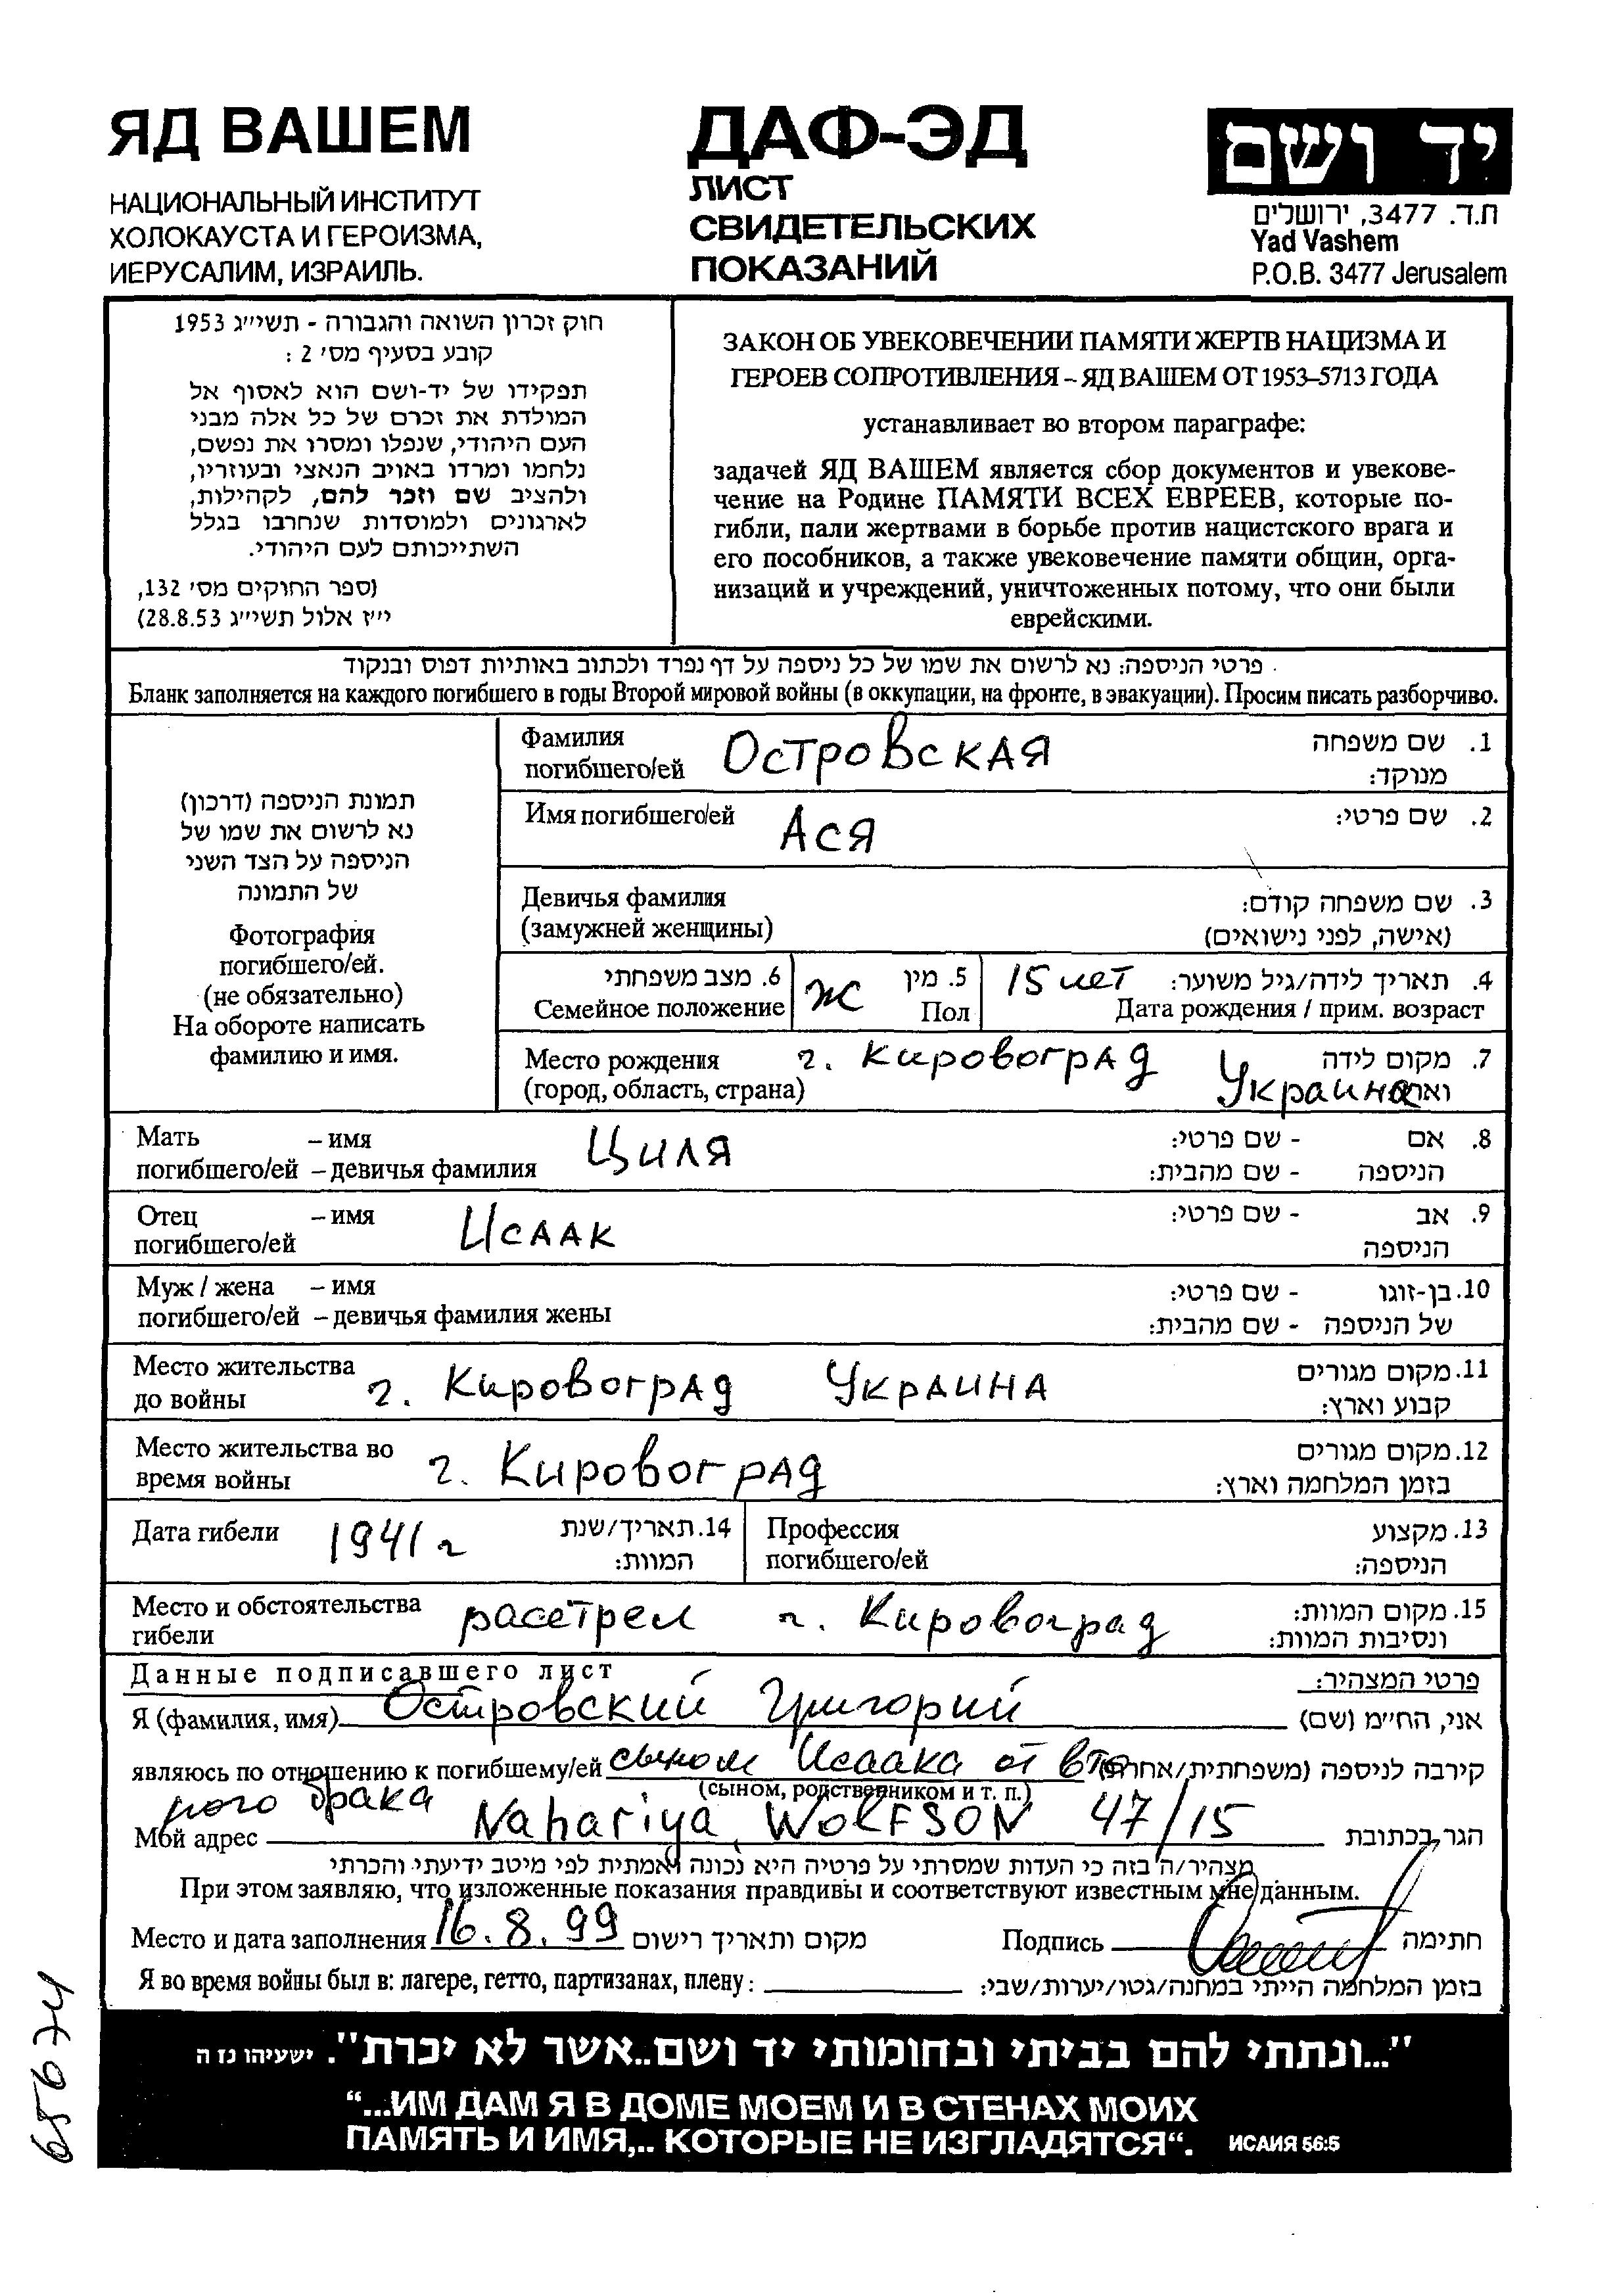 ЯД ВАШЕМ
НАЦИОНАЛЬНЫЙ ИНСТИТУТ
ХОЛОКАУСТА И ГЕРОИЗМА,
ИЕРУСАЛИМ, ИЗРАИЛЬ.
ДАФ-ЭД
ЛИСТ
СВИДЕТЕЛЬСКИХ
ПОКАЗАНИЙ
יד ושם
ת.ד. 3477, ירושלים
Yad Vashem
P.O.B. 3477 Jerusalem
חוק זכרון השואה והגבורה - תשי״ג 1953
קובע בסעיף מס׳ 2 :
תפקידו של יד-ושם הוא לאסוף אל
המולדת את זכרם של כל אלה מבני
העם היהודי, שנפלו ומסרו את נפשם,
נלחמו ומרדו באויב הנאצי ובעוזריו,
ולהציב שם וזכר להם, לקהילות,
לארגונים ולמוסדות שנחרבו בגלל
השתייכותם לעם היהודי.
(ספר החוקים מס׳ 132,
י״ז אלול תשי״ג 28.8.53)
ЗАКОН ОБ УВЕКОВЕЧЕНИИ ПАМЯТИ ЖЕРТВ НАЦИЗМА И
ГЕРОЕВ СОПРОТИВЛЕНИЯ – ЯД ВАШЕМ ОТ 1953–5713 ГОДА
устанавливает во втором параграфе:
задачей ЯД ВАШЕМ является сбор документов и увекове-
чение на Родине ПАМЯТИ ВСЕХ ЕВРЕЕВ, которые по-
гибли, пали жертвами в борьбе против нацистского врага и
его пособников, а также увековечение памяти общин, орга-
низаций и учреждений, уничтоженных потому, что они были
еврейскими.
פרטי הניספה: נא לרשום את שמו של כל ניספה על דף נפרד ולכתוב באותיות דפוס ובנקוד
Бланк заполняется на каждого погибшего в годы Второй мировой войны (в оккупации, на фронте, в эвакуации). Просим писать разборчиво.
תמונת הניספה (דרכון)
נא לרשום את שמו של
הניספה על הצד השני
של התמונה
Фотография
погибшего/ей.
(не обязательно)
На обороте написать
фамилию и имя.
Фамилия погибшего/ей ОСТРОВСКАЯ 1. שם משפחה מנוקד:
Имя погибшего/ей АСЯ 2. שם פרטי:
Девичья фамилия 3. שם משפחה קודם:
(замужней женщины) (אישה, לפני נישואים)
6. מצב משפחתי Ж 5. מין 15 лет 4. תאריך לידה/גיל משוער:
Семейное положение Пол Дата рождения / прим. возраст
Место рождения г. Кировоград 7. מקום לידה
(город, область, страна) Украина וארץ
Мать – имя Циля 8. אם - שם פרטי:
погибшего/ей – девичья фамилия הניספה - שם מהבית:
Отец – имя Исаак 9. אב - שם פרטי:
погибшего/ей הניספה
Муж / жена – имя 10. בן-זוגו - שם פרטי:
погибшего/ей – девичья фамилия жены של הניספה - שם מהבית:
Место жительства 11. מקום מגורים
до войны г. Кировоград Украина קבוע וארץ:
Место жительства во 12. מקום מגורים
время войны г. Кировоград בזמן המלחמה וארץ:
Дата гибели 1941 г 14. תאריך/שנת Профессия 13. מקצוע
המוות: погибшего/ей הניספה:
Место и обстоятельства расстрел г. Кировоград 15. מקום המוות:
гибели ונסיבות המוות:
Данные подписавшего лист פרטי המצהיר:
Я (фамилия, имя) Островский Григорий אני, הח״מ (שם)
являюсь по отношению к погибшему/ей сыном Исаака от вто קירבה לניספה (משפחתית/אחרת)
рого брака (сыном, родственником и т. п.)
Мой адрес Nahariya, WOLFSON 47/15 הגר בכתובת
מצהיר/ה בזה כי העדות שמסרתי על פרטיה היא נכונה ואמתית לפי מיטב ידיעתי והכרתי
При этом заявляю, что изложенные показания правдивы и соответствуют известным мне данным.
Место и дата заполнения 16.8.99 מקום ותאריך רישום Подпись חתימה
Я во время войны был в: лагере, гетто, партизанах, плену: בזמן המלחמה הייתי במחנה/גטו/יערות/שבי:
"...ונתתי להם בביתי ובחומותי יד ושם..אשר לא יכרת". ישעיהו נז ה
“...ИМ ДАМ Я В ДОМЕ МОЕМ И В СТЕНАХ МОИХ
ПАМЯТЬ И ИМЯ,.. КОТОРЫЕ НЕ ИЗГЛАДЯТСЯ“. ИСАИЯ 56:5